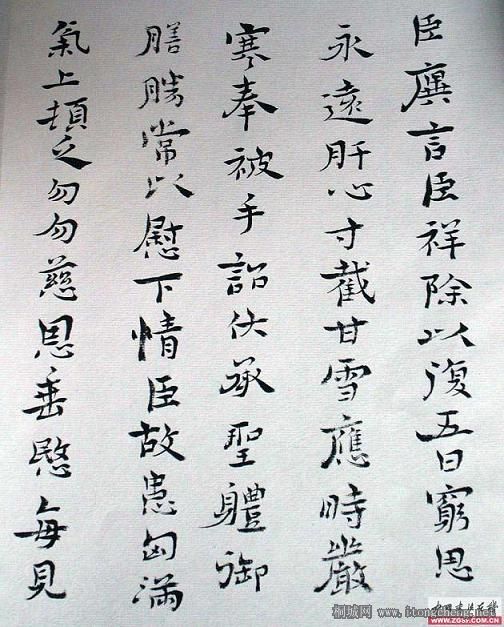 臣廙言臣祥除以復五日窮思
永遠肝心寸截甘雪應時嚴
寒奉被手詔伏承聖體御
膳勝常以慰下情臣故患匈滿
氣上頓乏勿勿慈恩垂愍每見
桐城网 www.itongcheng.net
WWW.ZGSF.COM.CN